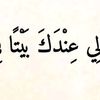 لِي عِنْدَكَ بَيْتًا